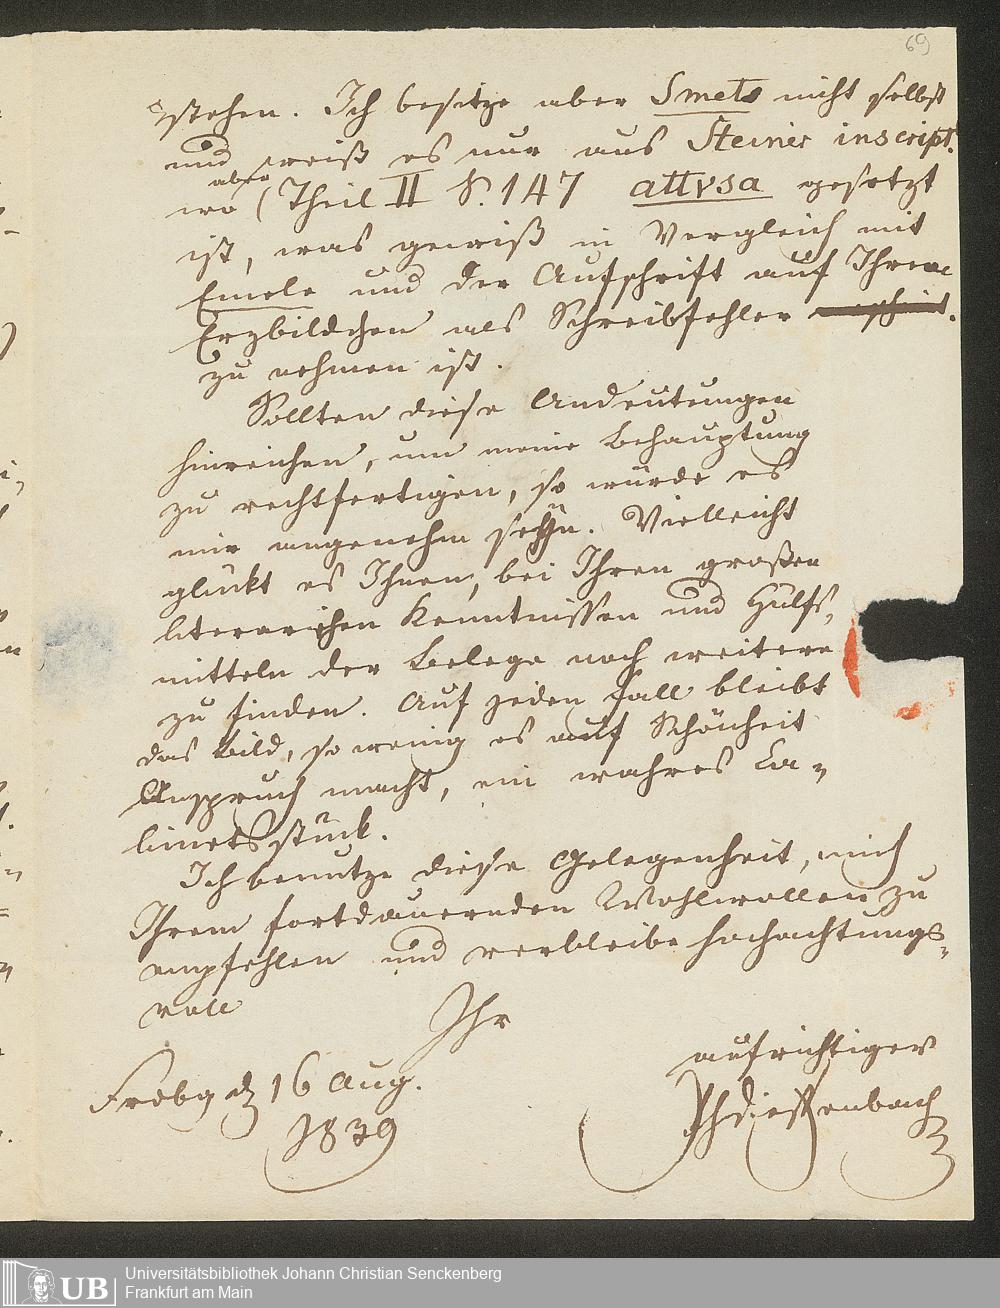 69
stehen. Ich besitze aber Smets nicht selbst
und weiß es nur aus Steiner inscript.
aber
wo (Theil II S. 147 attysa gesetzt
ist, was gewiß in Vergleich mit
Emele und der Aufschrift auf Ihrem
Erzbildchen als Schreibfehler
zu nehmen ist.
Sollten diese Andeutungen
hinreichen, um meine Behauptung
zu rechtfertigen, so würde es
mir angenehm seyn. Vielleicht
glückt es Ihnen, bei Ihren großen
literarischen Kenntnissen und Hülfs-
mitteln der Belege noch weitere
zu finden. Auf jeden Fall bleibt
das Bild, so wenig es auf Schönheit
Anspruch macht, ein wahres Ca-
binetsstück.
Ich benutze diese Gelegenheit, mich
Ihrem fortdauernden Wohlwollen zu
empfehlen und verbleibe hochachtungs-
voll
Ihr
aufrichtiger
Frdbg d 16 Aug.
1839
Phdieffenbach
UB
Universitätsbibliothek Johann Christian Senckenberg
Frankfurt am Main